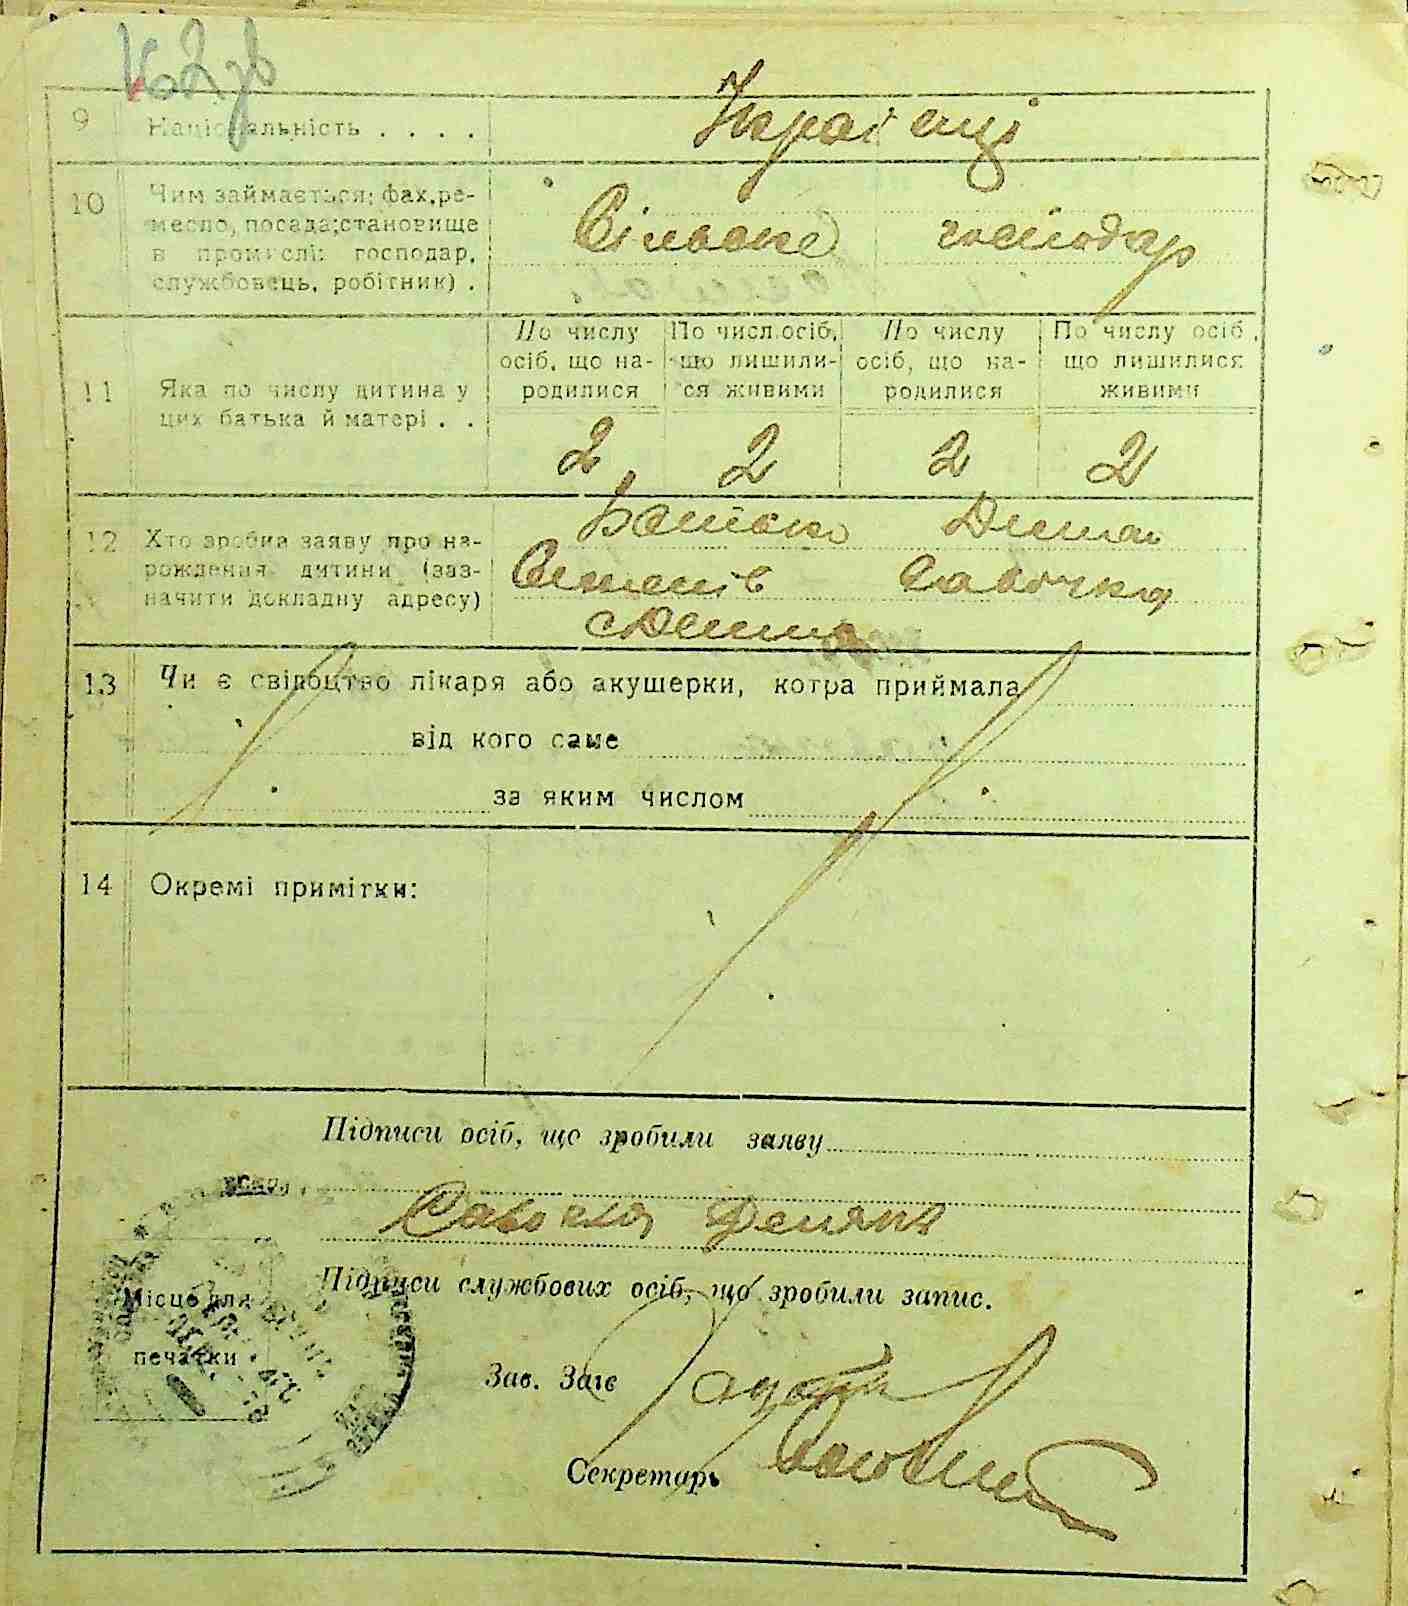 9 Національність . . . . Українці
10 Чим займається: фах, ре-
месло, посада; становище
в промислі: господар,
службовець, робітник) .
Сільське господар
По числу осіб, що на-родилися
По числ. осіб, що лишили-ся живими
По числу осіб, що на-родилися
По числу осіб, що лишилися живими
11 Яка по числу дитина у
цих батька й матері . .
2 2 2 2
12 Хто зробив заяву про на-
рождення дитини (заз-
начити докладну адресу)
Батько
Савочка
13 Чи є свідоцтво лікаря або акушерки, котра приймала
від кого саме
за яким числом
14 Окремі примітки:
Підписи осіб, що зробили заяву
Савочка
Підписи службових осіб, що зробили запис.
Місце для
печатки
Зав. Загс
Секретарь